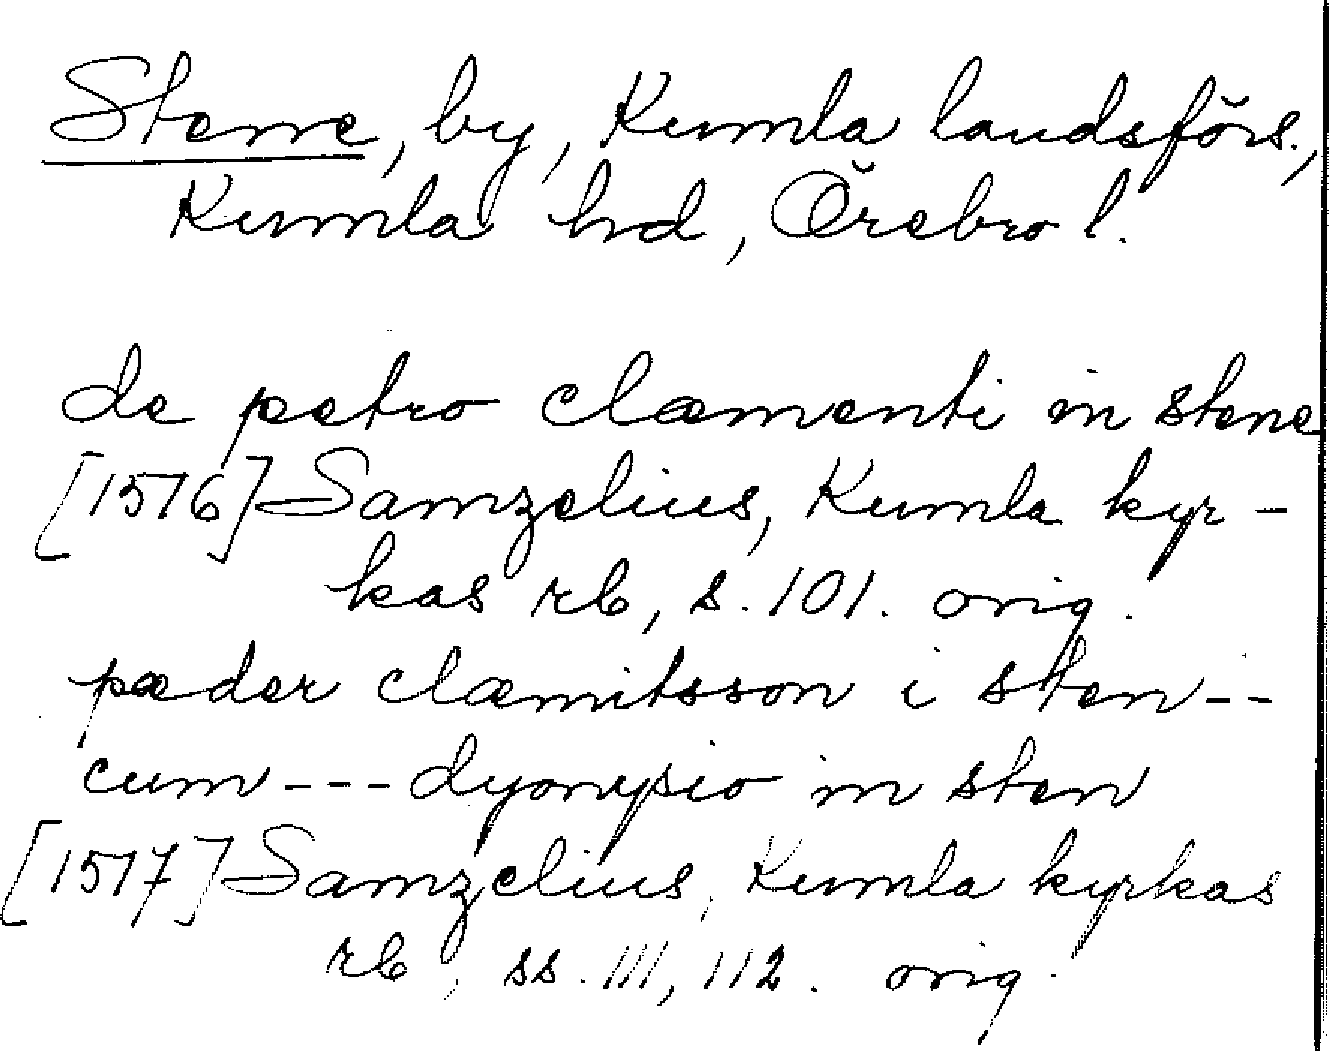 Stenre, by, Kumla landsförs.,
Kumla hd, Örebro l.
de petro clæmenti in stene
[1516] Samzelius, Kumla kyr-
kas rb, s. 101. orig.
pæder clæmitsson i sten--
cum --- dyonysio in sten
[1517] Samzelius, Kumla kyrkas
rb, ss. 111, 112. orig.